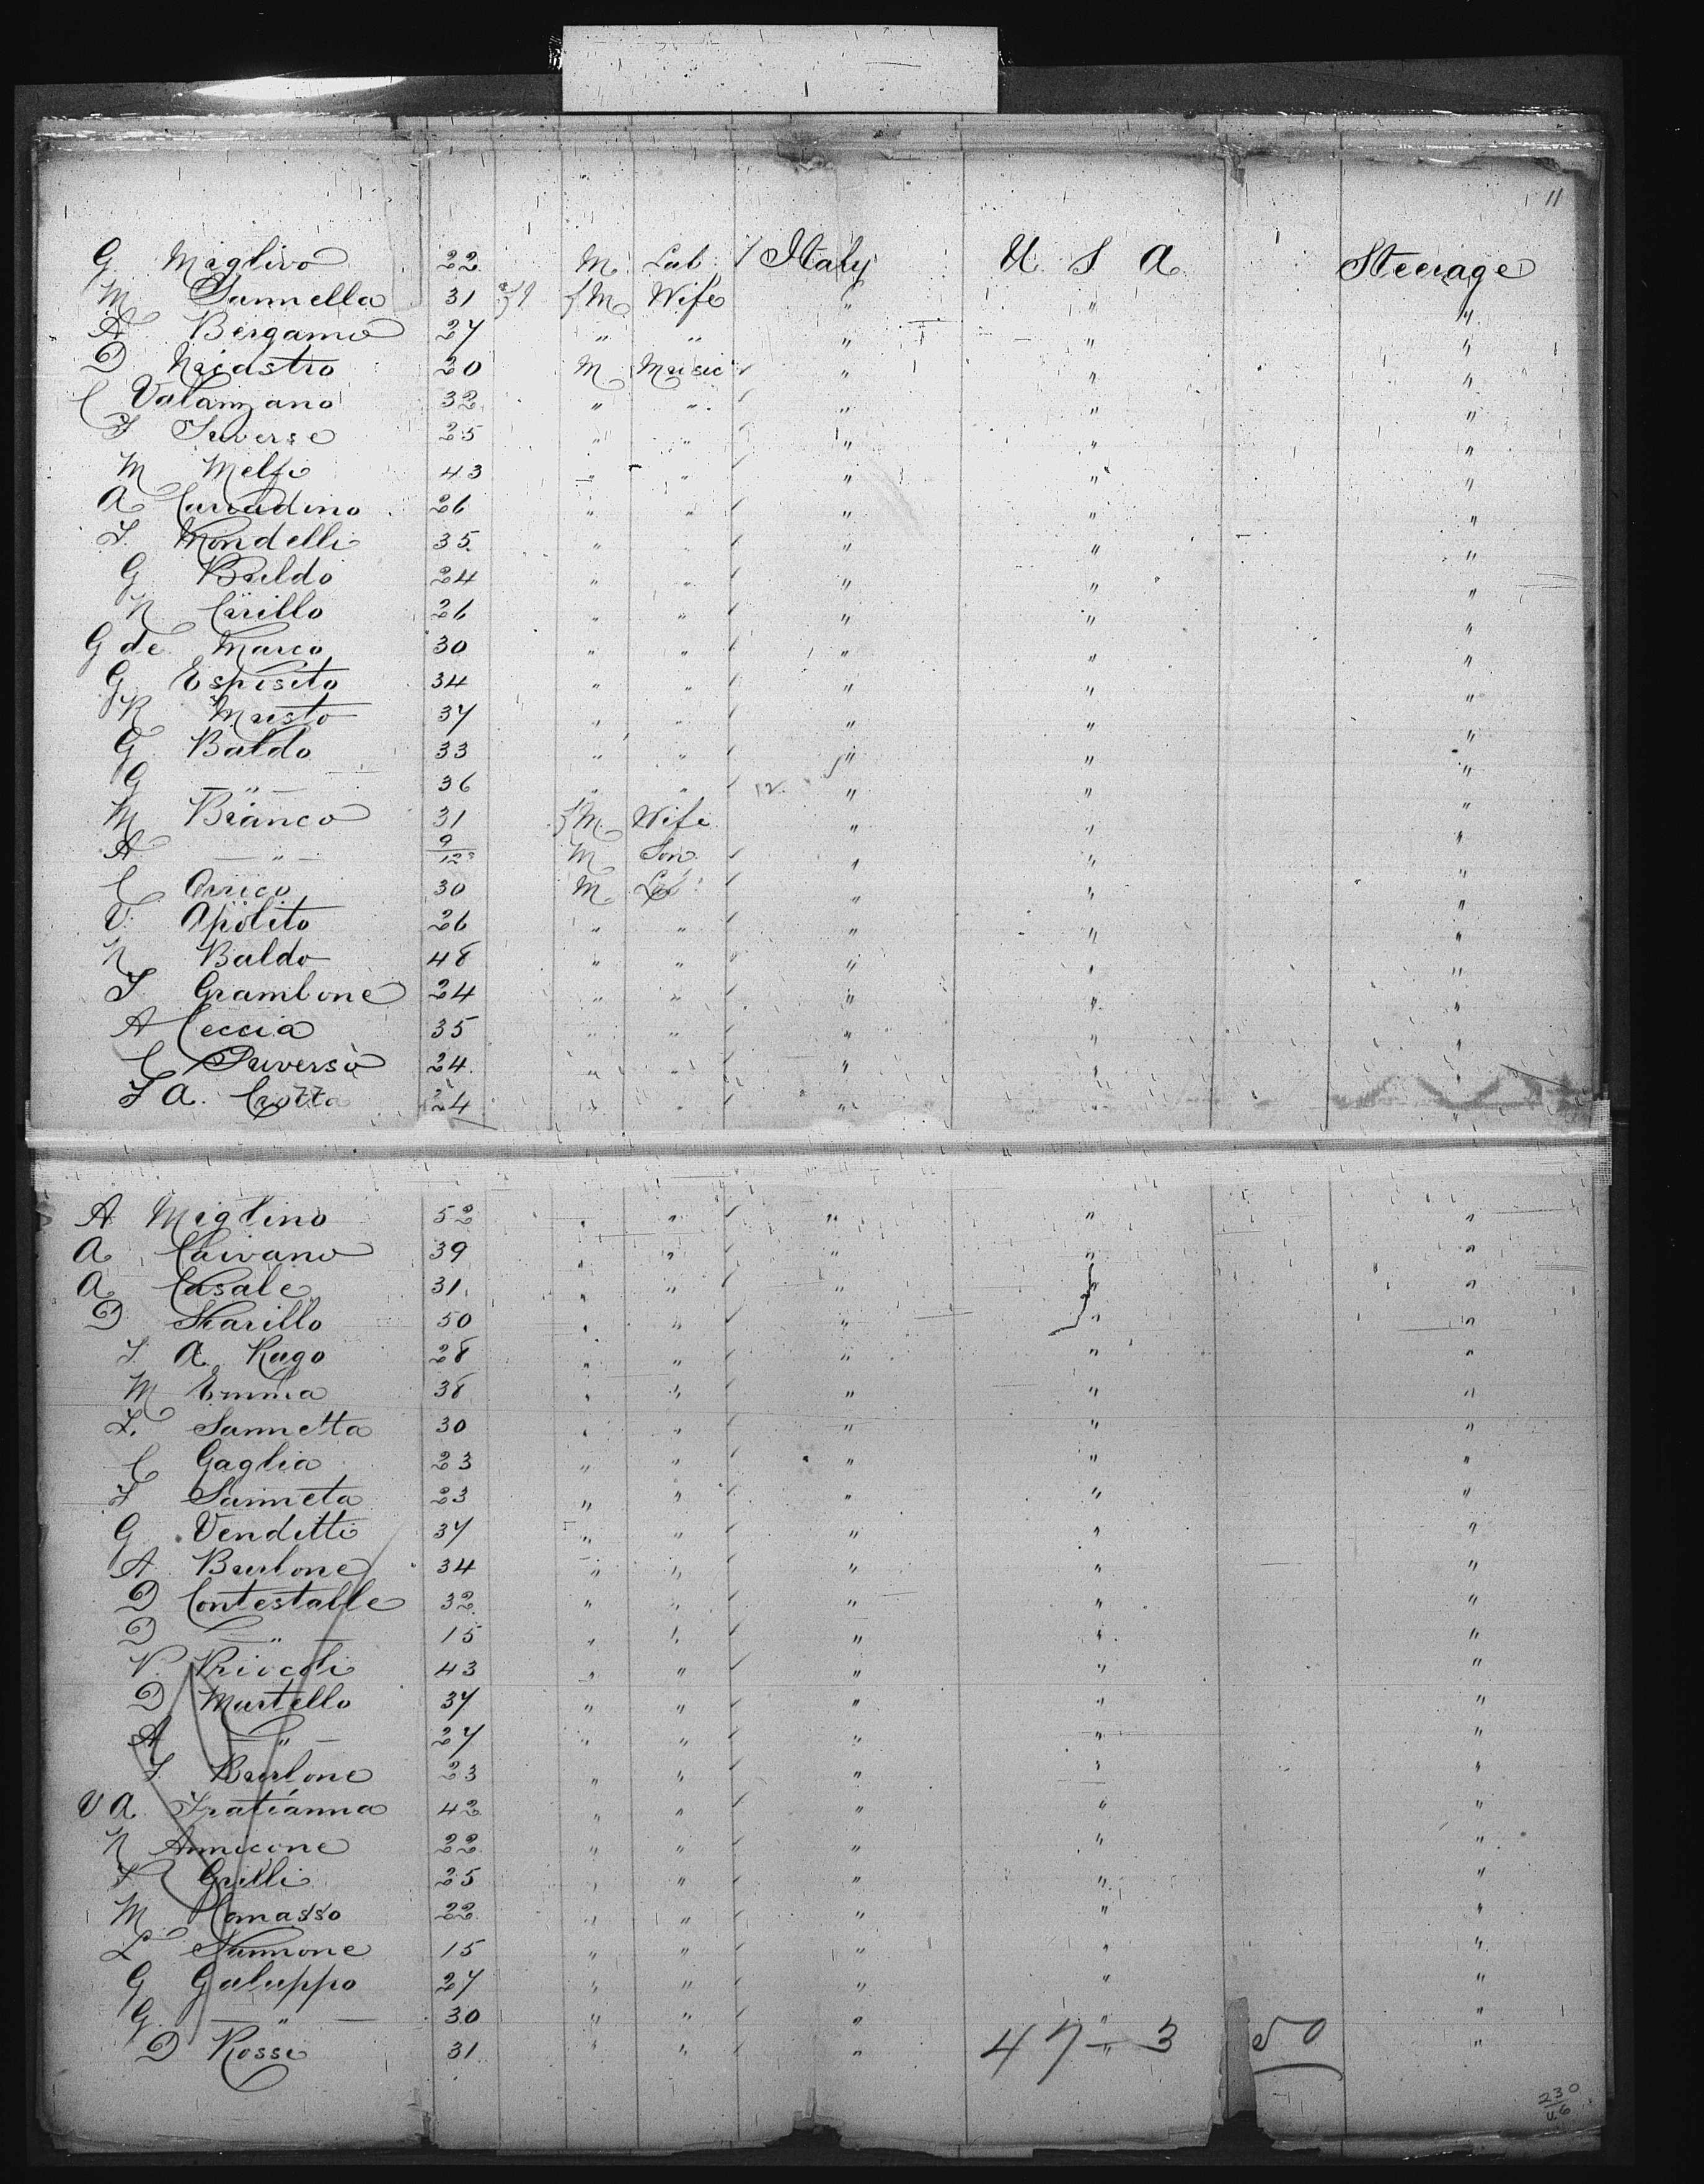 11
G Maglivo 22 M Lab: / Italy U S A Steerage
M Iannella 31 fM Wife " " "
A Bergamo 27 " " " " "
D Nicastro 20 M Music " " "
C Valanzano 32 " " " " "
F Iuverse 25 " " " " "
M Melfi 43 " " " " "
A Corradino 26 " " " " "
F Mondelli 35 " " " " "
G Baldo 24 " " " " "
N Carillo 26 " " " " "
G de Marco 30 " " " " "
G Esposito 34 " " " " "
R Musto 37 " " " " "
G Baldo 33 " " " " "
G — " — 36 " " " " "
M Bianco 31 fM Wife " " "
A — " — 9/12 M Son " " "
C Orrico 30 M Lab: " " "
V. Apolito 26 " " " " "
N Baldo 48 " " " " "
F Grambone 24 " " " " "
A Ceccia 35 " " " " "
C Iuverso 24 " " " " "
F A. Cozza 24 " " " " "
A Miglino 52 " " " " "
A Caivano 39 " " " " "
A Casale 31 " " " " "
D Starillo 50 " " " " "
F. A. Rugo 28 " " " " "
M Emma 38 " " " " "
L. Iannetta 30 " " " " "
C Gaglia 23 " " " " "
F Ianneta 23 " " " " "
G Venditti 37 " " " " "
A Burlone 34 " " " " "
D Contestabile 32 " " " " "
D — " — 15 " " " " "
V. 43 " " " " "
D Martello 37 " " " " "
A — " — 27 " " " " "
F. Burlone 23 " " " " "
V A. Fratianna 42 " " " " "
N Amicone 22 " " " " "
F Grilli 25 " " " " "
M Comasso 22 " " " " "
L Iannone 15 " " " " "
G Galuppo 27 " " " " "
G. — " — 30 " " " " "
D Rossi 31 " " " " "
47 – 3 50
230
46